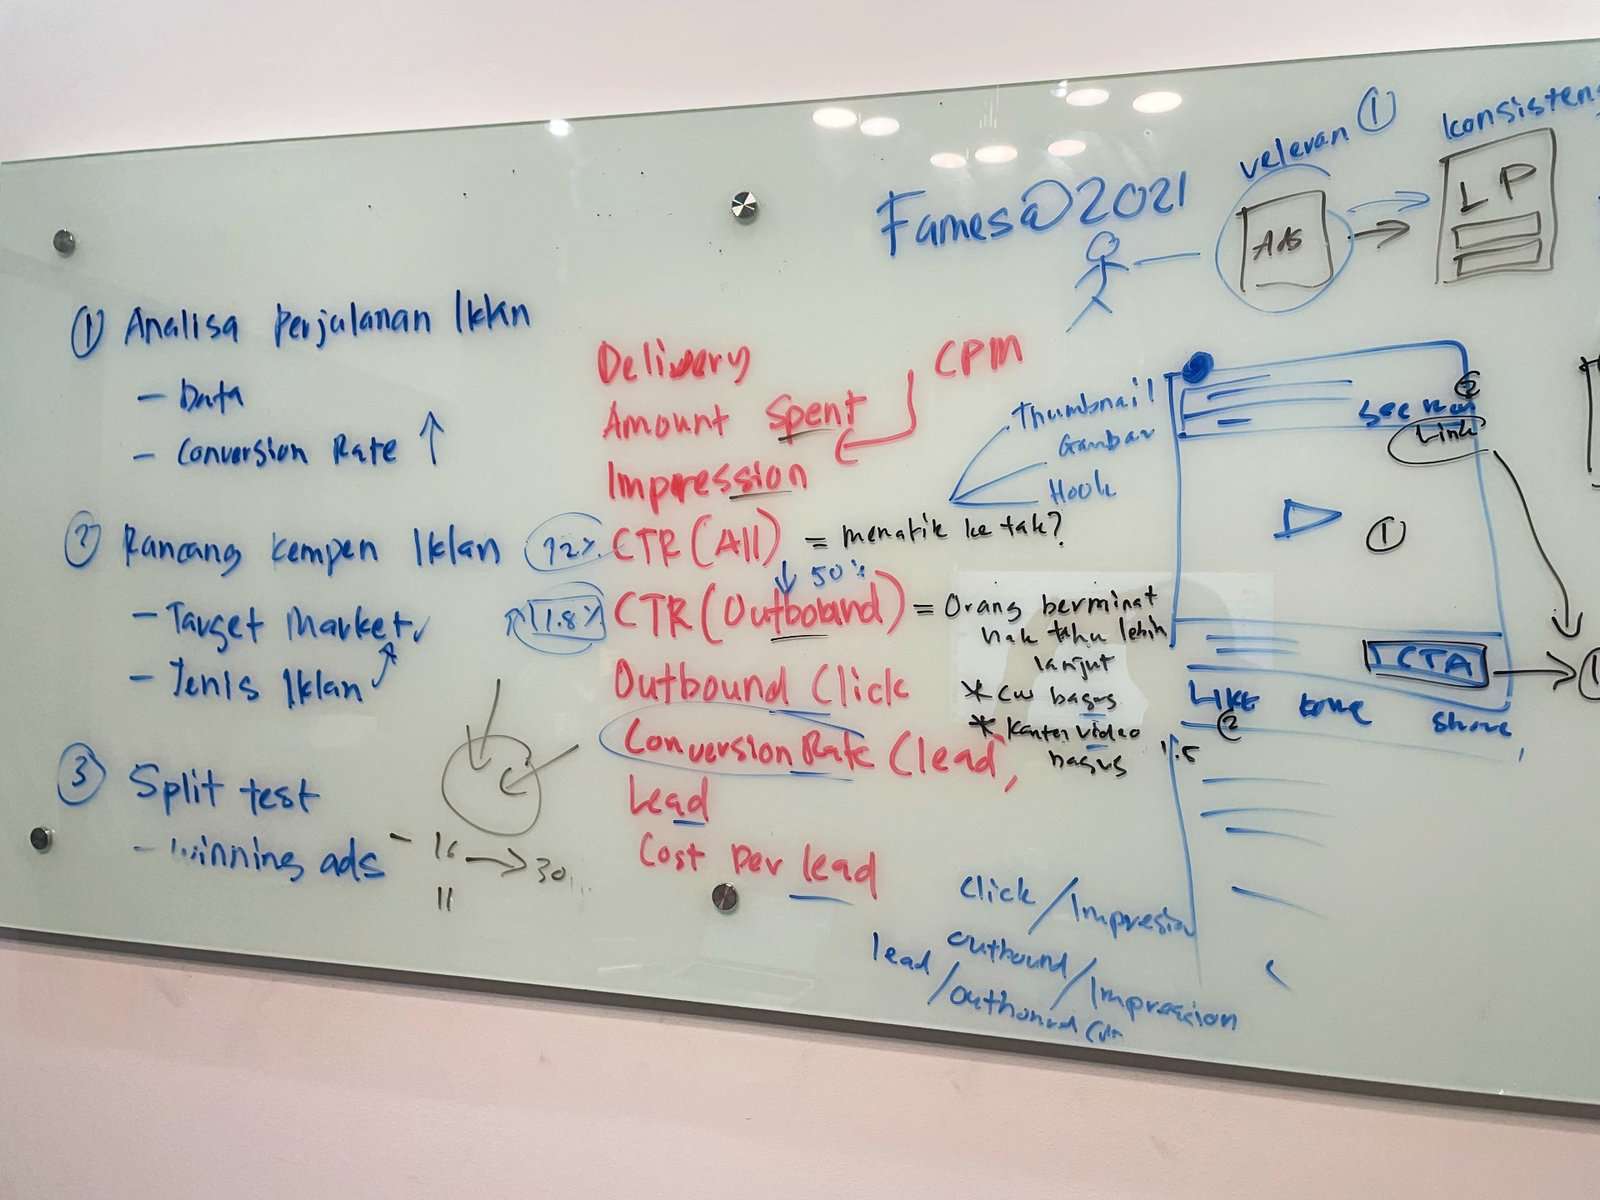 ① Analisa Perjalanan Iklan
- Data
- Conversion Rate ↑
② Rancang kempen Iklan
- Target Market
- Jenis Iklan
③ Split test
- Winning ads - 16 → 30
11
Delivery
CPM
Amount Spent
Impression
CTR (All) = menarik ke tak?
↓ 50%
1.8% CTR (Outbound) = Orang berminat
nak tahu lebih
lanjut
* CW bagus
* Konten video
bagus
Outbound Click
Conversion Rate (lead,
Lead
Cost Per lead
Thumbnail
Gambar
Hook
Click / Impresion
outbound / Impression
lead / outbound
Fames@2021
relevan ①
ADS
konsisten
LP
②
see more
Link
①
CTA
LIKE
②
Share